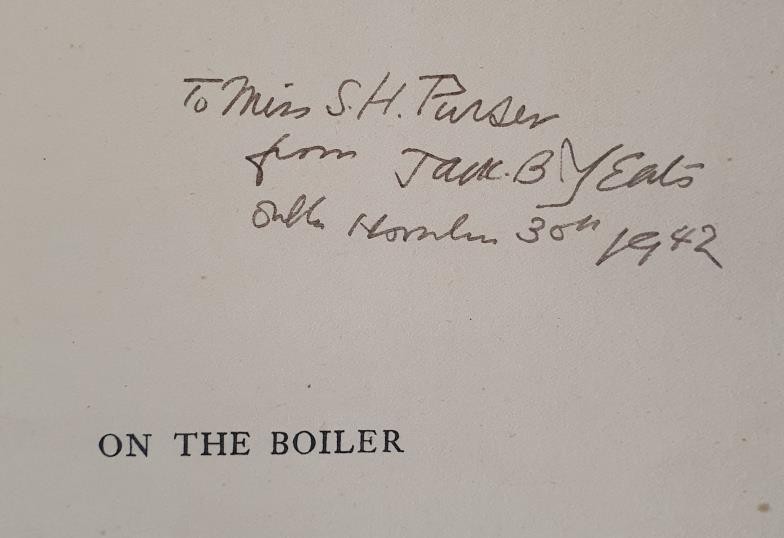 To Miss S. H. Purser
from Jack. B Yeats
November 30th 1942
ON THE BOILER